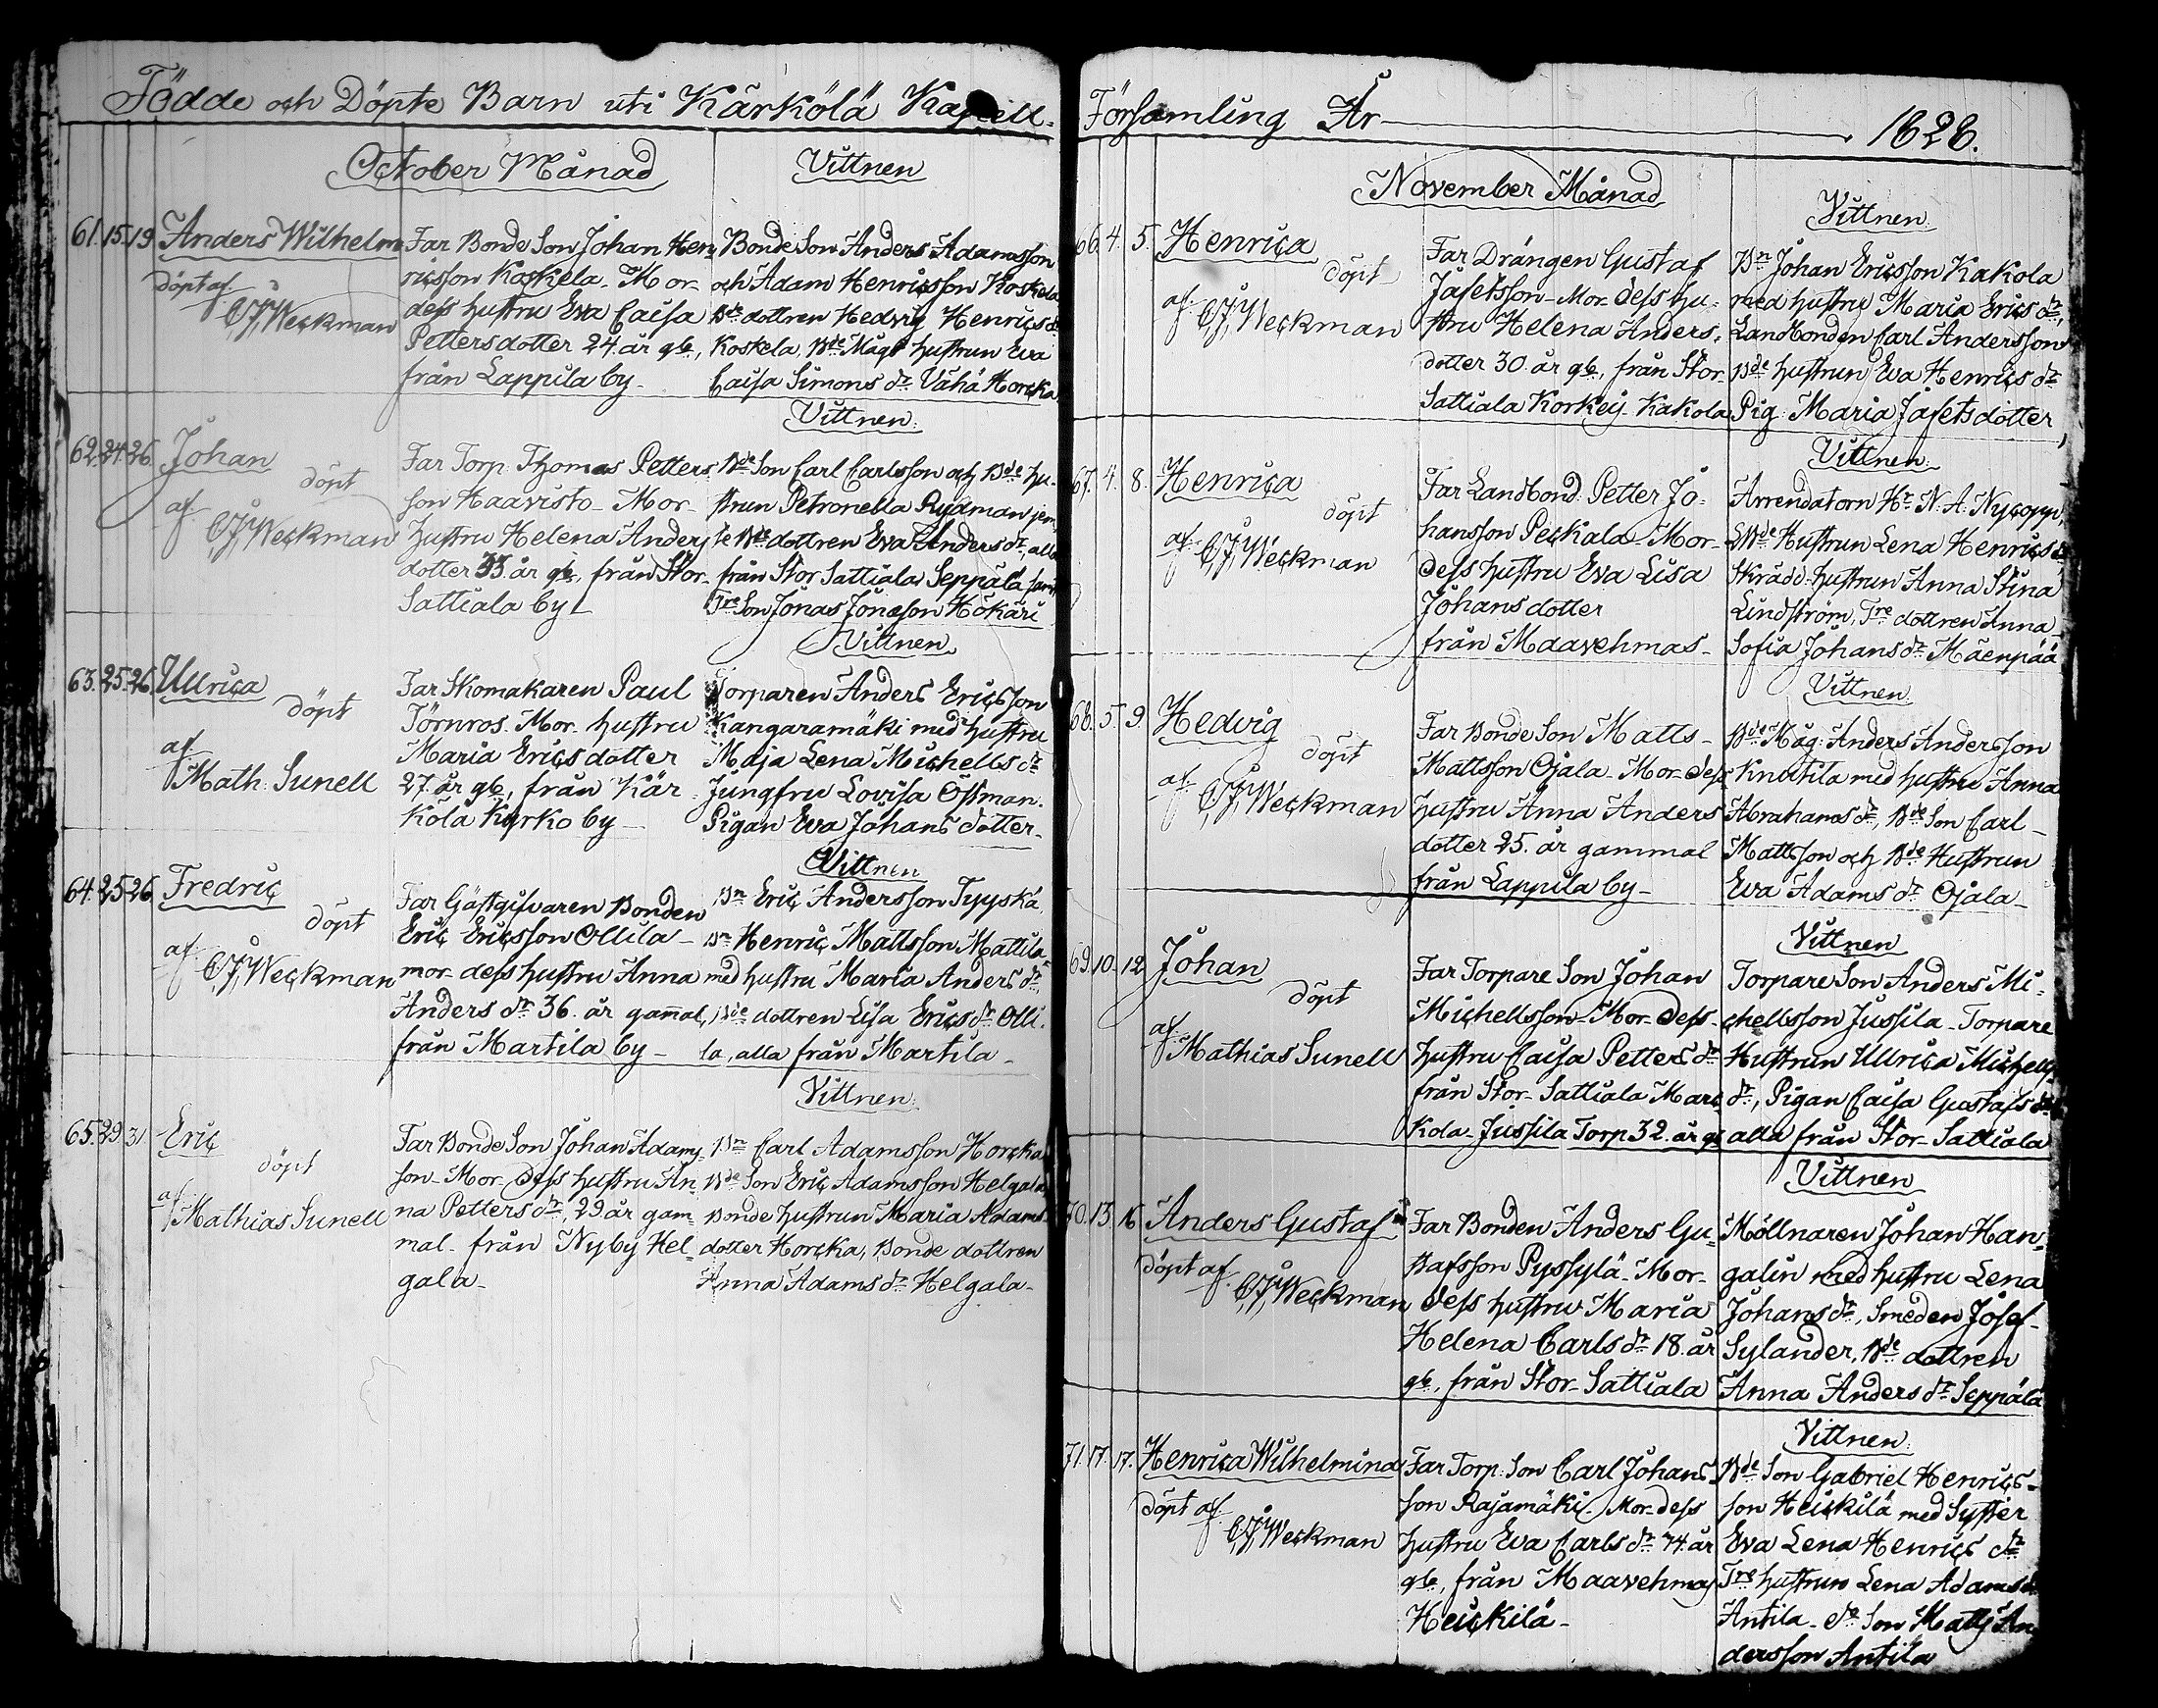 Födde och Döpte Barn uti Kärkölä Kapell-
October Månad
Vittnen
61. 15. 19. Anders Wilhelm
döpt af
C,J,Weckman
Far Bonde Son Johan Hen-
ricsson Koskela. Mor-
dess hustru Eva Caisa
Pettersdotter 24. år gl,
från Lappila by-
Bonde Son Anders Adamsson
och Adam Henricsson Koskela
Bde dottren Hedvig Henrics dr
Koskela, Bde Mågs hustrun Eva
Caisa Simons dr Vähä Horcka
Vittnen.
62. 24. 26. Johan
döpt
af
C,J,Weckman
Far Torp. Thomas Petters
son Haavisto- Mor-
hustru Helena Anders
dotter 33. år gl, från Stor-
Sattiala by-
Bde Son Carl Carlsson och Bde hu-
strun Petronella Rydman jem-
te Bde dottren Eva Anders dr, alla
från Stor Sattiala Seppälä, samt
Tre Son Jonas Jonasson Hökäri
Vittnen
63. 25. 26. Ullrica
döpt
af
Math: Sunell
Far Skomakaren Paul
Törnros. Mor. hustru
Maria Ericsdotter
27. år gl, från Kär-
kölä Kyrko by-
Torparen Anders Ericsson
Kangaramäki med hustru
Maja Lena Michells dr
Jungfru Lovisa Össman.
Pigan Eva Johans dotter-
Vittnen
64. 25. 26. Fredric
döpt
af
C,J,Weckman
Far Gästgifvaren Bonden
Eric Ericsson Ollila-
mor- dess hustru Anna
Anders dr 36. år gamal,
från Martila by-
Bn Eric Andersson Tyyskä,
Bn Henric Mattsson Mattila-
med hustru Maria Anders dr,
Bde dottren Lisa Erics dr Olli-
la, alla från Martila-
Vittnen.
65. 29. 31 Eric
döpt
af
Mathias Sunell
Far Bonde Son Johan Adams-
son- Mor- dess hustru An-
na Petters dr, 29 år gam-
mal- från Nyby Hel-
gala-
Bn Carl Adamsson Horcka
Bde Son Eric Adamsson Helgala
Bonde hustrun Maria Adams-
dotter Horcka, Bonde dottren
Anna Adams dr Helgala-
Församling År 1828.
November Månad
Vittnen.
66. 4. 5. Henrica
döpt
af
C,J,Weckman
Far Drängen Gustaf
Jafetsson- Mor- dess hu-
stru Helena Anders-
dotter 30. år gl, från Stor-
Sattiala Korkeij- Kakola
Bn Johan Ericsson Kakola
med hustru Maria Erics dr,
Landbonden Carl Andersson
Bde hustrun Eva Henrics dr
Pig: Maria Jafetsdotter
Vittnen.
67. 4. 8. Henrica
döpt
af
C,J,Weckman
Far Landbond: Petter Jo-
hansson Peckala- Mor-
dess hustru Eva Lisa
Johans dotter
från Maavehmas-
Arrendatorn Hr N: A: Nycopp,
LBde Hustrun Lena Henrics dr
Skrädd: hustrun Anna Stina
Lindström, Tre dottren Anna
Sofia Johans dr Mäenpää
Vittnen
68. 5. 9. Hedvig
döpt
af
C,J,Weckman
Far Bonde Son Matts-
Mattsson Ojala- Mor- dess
hustru Anna Anders
dotter 25. år gammal
från Lappila by-
Bde Måg: Anders Andersson
Knutila med hustru Anna
Abrahams dr, Bde Son Carl-
Mattsson och Bde Hustrun
Eva Adams dr Ojala-
Vittnen
69. 10. 12. Johan
döpt
af
Mathias Sunell
Far Torpare Son Johan
Michellsson- Mor- dess-
hustru Caisa Petters dr
från Stor- Sattiala Marc
kola- Jussila Torp 32. år gl
Torpare Son Anders Mi-
chellsson Jussila- Torpare
Hustrun Ullrica Michells
dr, Pigan Caisa Gustafs dr
alla från Stor- Sattiala
Vittnen
70. 13. 16 Anders Gustaf
döpt af
C,J,Weckman
Far Bonden Anders Gu-
stafsson Pyssylä- Mor-
dess hustru Maria
Helena Carls dr 18. år
gl, från Stor- Sattiala
Möllnaren Johan Han-
galin med hustru Lena
Johans dr, Smeden Josef-
Sylander, Bde dottren
Anna Anders dr Seppälä
Vittnen.
71. 17. 17. Henrica Wilhelmina
döpt af
C,J,Weckman
Far Torp: Son Carl Johans-
son Rajamäki- Mor- dess
hustru Eva Carls dr 44. år
gl, från Maavehmas
Heickilä-
Bde Son Gabriel Henrics-
son Heickilä med Syster
Eva Lena Henrics dr
Tre hustrun Lena Adams dr
Antila- de Son Matts An
dersson Antila